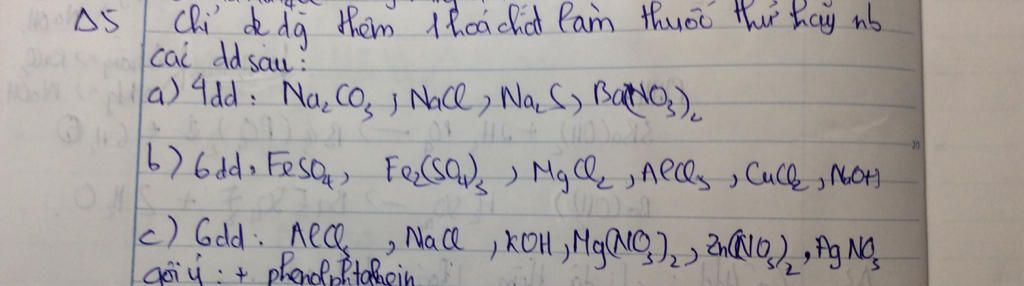 Δ5 Chỉ đc dg thêm 1 hoá chất làm thuốc thử hãy nb
các dd sau:
a) 4dd: Na₂CO₃; NaCl, Na₂S, Ba(NO₃)₂
b) 6dd: FeSO₄, Fe₂(SO₄)₃, MgCl₂, AlCl₃, CuCl₂, NaOH
c) 6dd: AlCl₃, NaCl, KOH, Mg(NO₃)₂, Zn(NO₃)₂, AgNO₃
gợi ý: + phenolphtalein